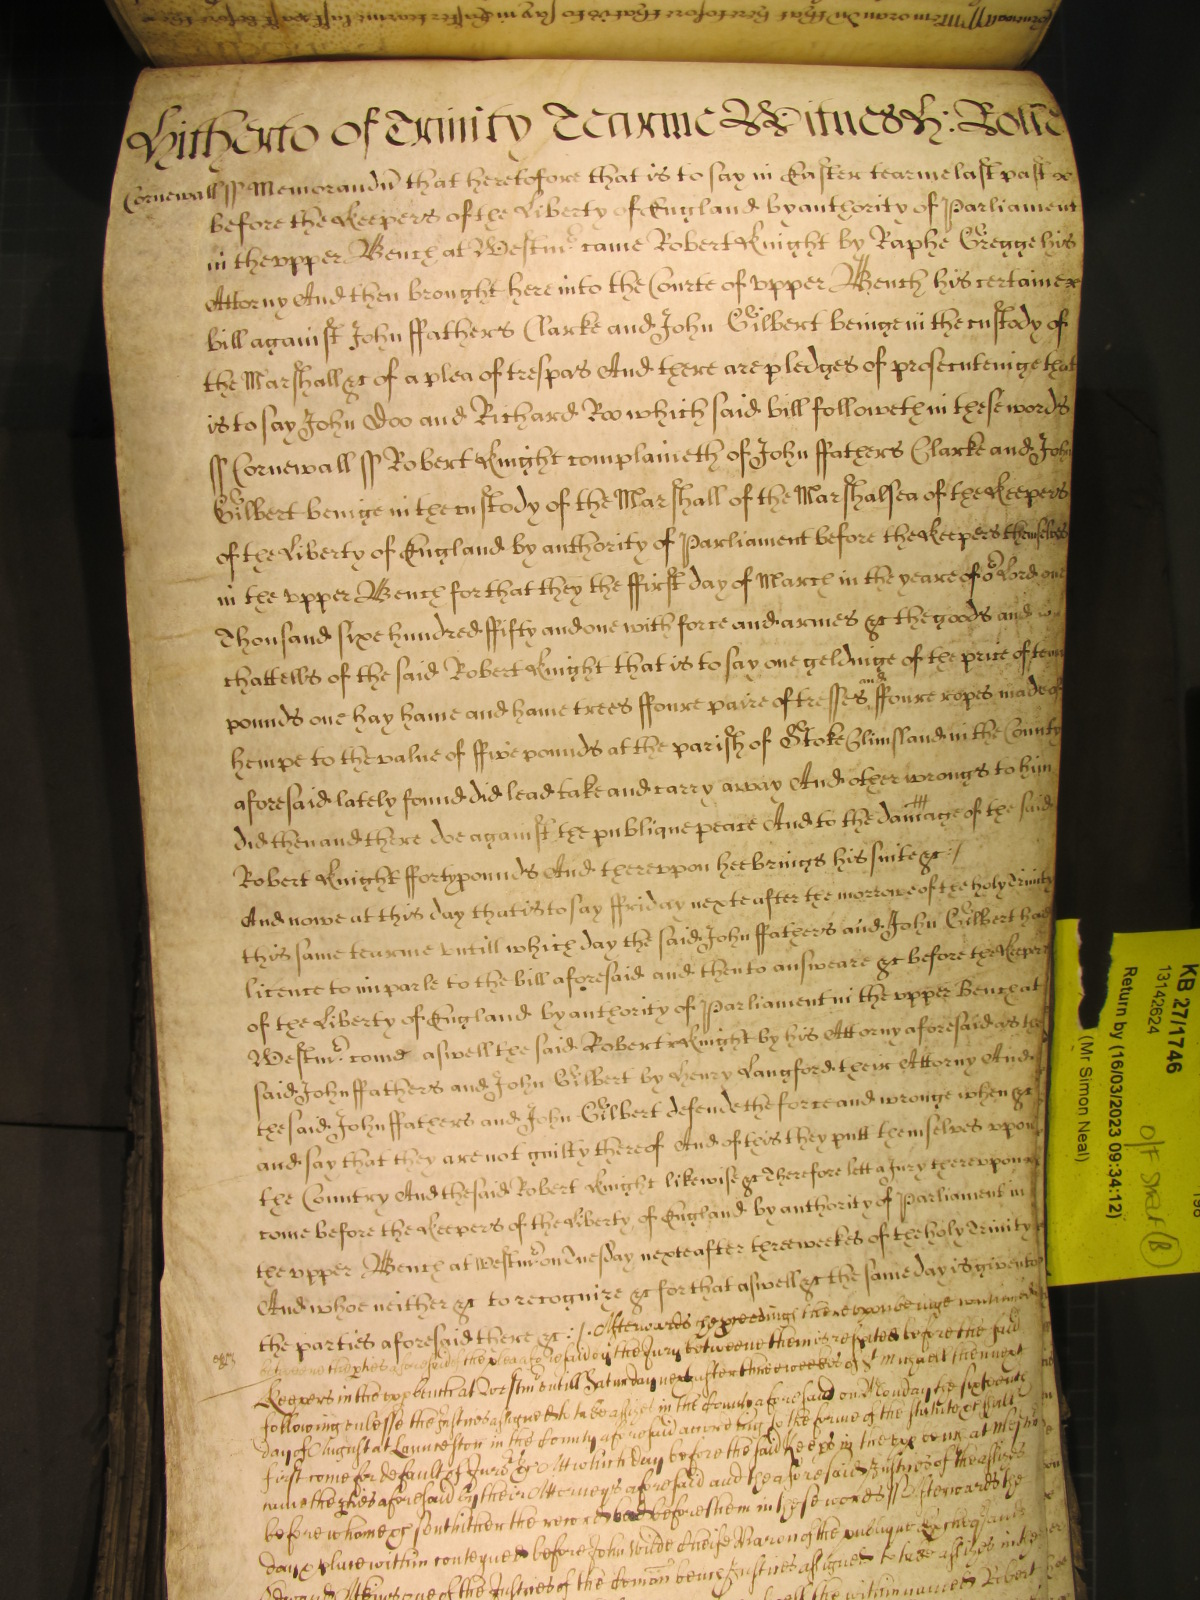 Hitherto of Trinity Tearme Witnes H: Rolle
Cornewall ss Memorandū that heretofore that is to say in Easter tearme last past
before the Keepers of the Liberty of England by authority of Parliament
in the vpper Bench at Westmr came Robert Knight by Raphe Gregge his
Attorny And then brought here into the Courte of vpper Bench his certaine
bill against John ffathers Clarke and John Gilbert beinge in the custody of
the Marshall &c of a plea of trespas And there are pledges of prosecuteinge that
is to say John Doo and Richard Roo which said bill followeth in these words
ss Cornewall ss Robert Knight complaineth of John ffathers Clarke and John
Gilbert beinge in the custody of the Marshall of the Marshalsea of the Keepers
of the Liberty of England by authority of Parliament before the Keepers themselves
in the vpper Bench for that they the ffirst day of March in the yeare of or Lord one
Thousand sixe hundred ffifty and one with force and armes &c the goods and
chattells of the said Robert Knight that is to say one geldinge of the price of tenn
pounds one hay hame and hame trees ffoure paire of tresses and ffoure ropes made of
hempe to the value of ffive pounds at the parish of Stoke Clinsland in the County
aforesaid lately found did lead take and carry away And other wrongs to him
did then and there doe against the publique peace And to the damage of the said
Robert Knight ffortypounds And therevpon hee brings his suite &c
And nowe at this day that is to say ffriday nexte after the morrowe of the holy Trinity
this same tearme vntill which day the said John ffathers and John Gilbert had
licence to imparle to the bill aforesaid and then to answeare &c before the Keepers
of the Liberty of England by authority of Parliament in the vpper Bench at
Westmr come aswell the said Robert Knight by his Attorny aforesaid as the
said John ffathers and John Gilbert by Henry Langford their Attorny And
the said John ffathers and John Gilbert defende the force and wronge when &c
and say that they are not guilty thereof And of this they putt themselves vpon
the Country And the said Robert Knight likewise &c Therefore lett a Jury therevpon
come before the Keepers of the Liberty of England by authority of Parliament in
the vpper Bench at Westmr on Tuesday nexte after three weekes of the holy Trinity
And whoe neither &c to recognize &c for that aswell &c the same day is given to
the parties aforesaid there &c Afterwards the therevpon beinge continued
betweene the aforesaid of the plea aforesaid the Jury betweene them is respited before the said
Keepers in the vpp bench at Westmr untill Saturday next after three weekes of St Michaell then next
following unlesse the Justices assigned to take assizes in the County aforesaid on Monday the sixteenth
day of August at Launceston in the County aforesaid according to the forme of the statute &c shall
first come for default of Jurors &c At which day before the said Keeps in the vpp bench at
came the pties aforesaid by their Attorneys aforesaid and the aforesaid Justices of the assizes
before whome &c sent hither the record had before them in these words ss Afterwards the
day & place within conteyned before John Wilde cheife Baron of the publique Exchequer and
Edward Atkins one of the Justices of the Comon bench Justices assigned to take assizes in the
the within named Robert
KB 27/1746
13142624
Return by (16/03/2023 09:34:12)
(Mr Simon Neal)